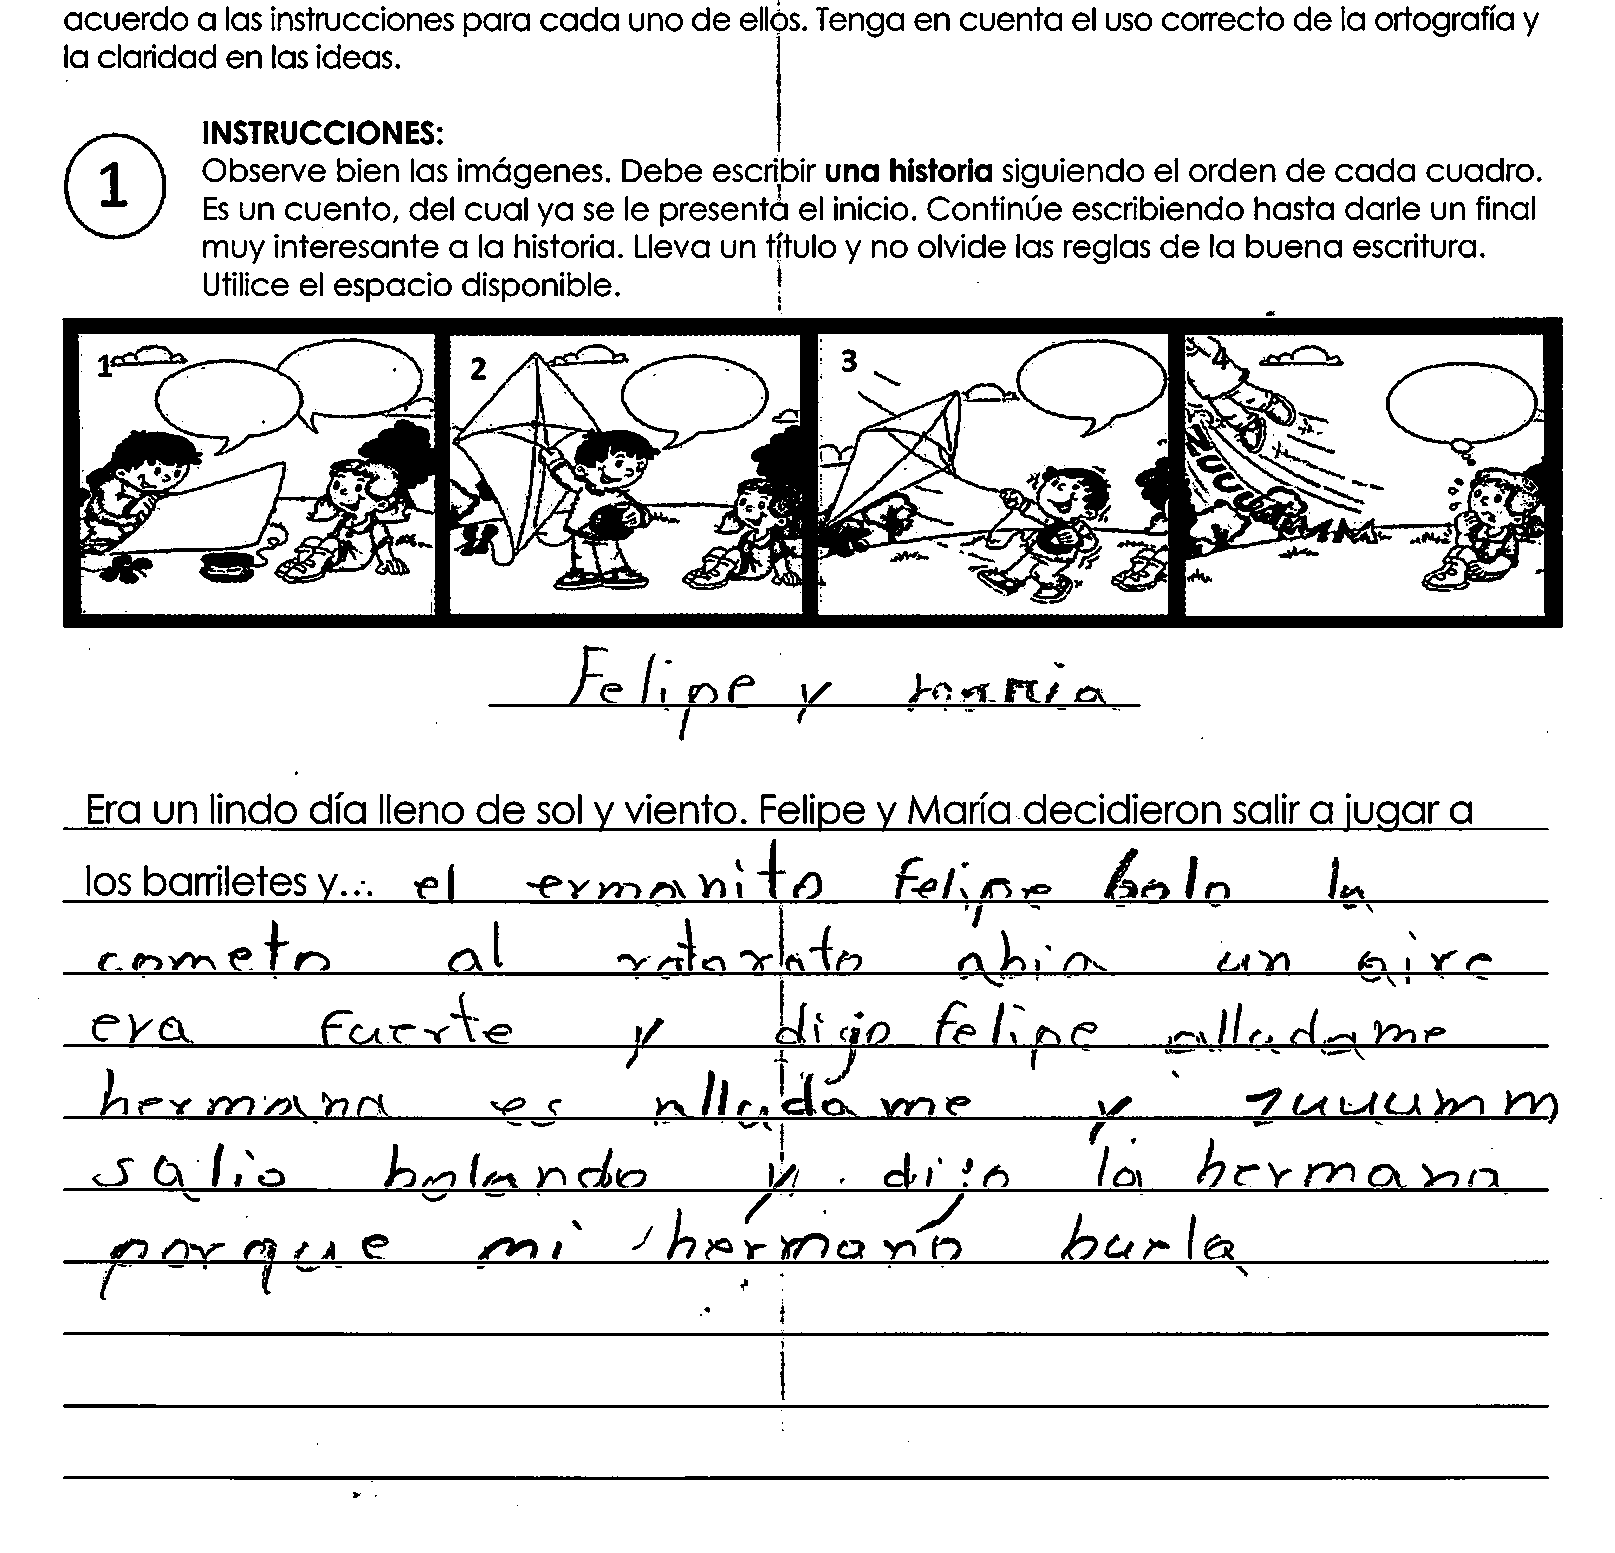 acuerdo a las instrucciones para cada uno de ellos. Tenga en cuenta el uso correcto de la ortografía y
la claridad en las ideas.
INSTRUCCIONES:
1
Observe bien las imágenes. Debe escribir una historia siguiendo el orden de cada cuadro.
Es un cuento, del cual ya se le presenta el inicio. Continúe escribiendo hasta darle un final
muy interesante a la historia. Lleva un título y no olvide las reglas de la buena escritura.
Utilice el espacio disponible.
1 2 3 4
Felipe y maria
Era un lindo día lleno de sol y viento. Felipe y María decidieron salir a jugar a
los barriletes y... el ermanito felipe bolo la
cometa al abia un aire
era fuerte y dijo felipe alludame
hermana es alludame y zuuumm
salio bolando y dijo la hermana
porque mi hermano burla